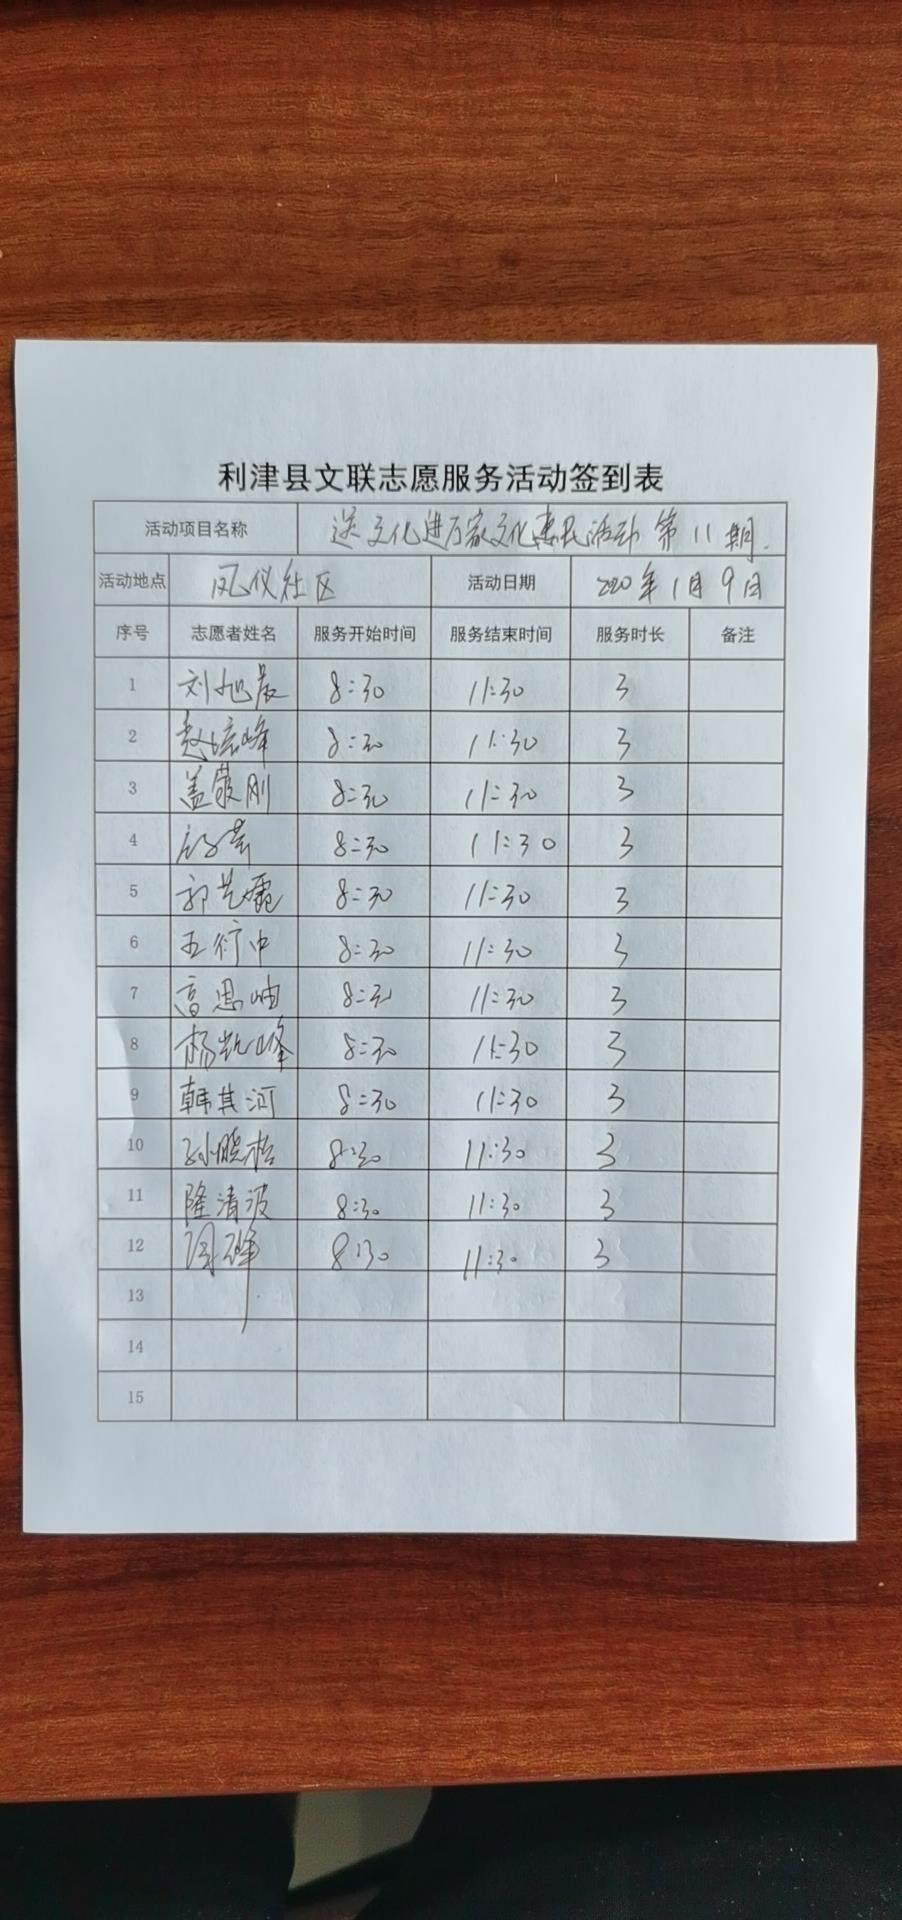 利津县文联志愿服务活动签到表
活动项目名称 送文化进万家文化惠民活动第11期.
活动地点 凤仪社区 活动日期 2020年1月9日
序号 志愿者姓名 服务开始时间 服务结束时间 服务时长 备注
1 刘旭晨 8:30 11:30 3
2 赵培峰 8:30 11:30 3
3 盖俊刚 8:30 11:30 3
4 8:30 11:30 3
5 郭艺 8:30 11:30 3
6 王行中 8:30 11:30 3
7 高思岫 8:30 11:30 3
8 杨凯峰 8:30 11:30 3
9 韩其河 8:30 11:30 3
10 孙晓松 8:30 11:30 3
11 隆清波 8:30 11:30 3
12 8:30 11:30 3
13
14
15